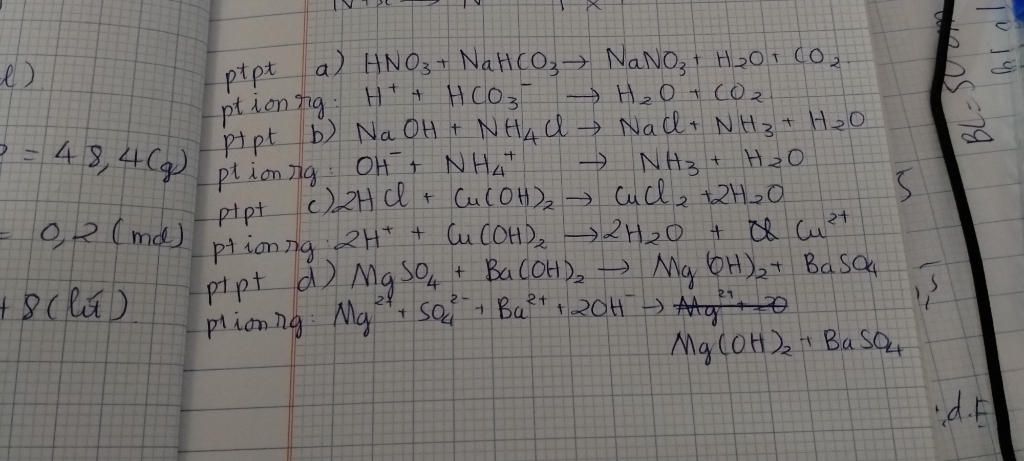 ptpt a) HNO₃ + NaHCO₃ → NaNO₃ + H₂O + CO₂
pt ion rg: H⁺ + HCO₃⁻ → H₂O + CO₂
ptpt b) NaOH + NH₄Cl → NaCl + NH₃ + H₂O
pt ion rg: OH⁻ + NH₄⁺ → NH₃ + H₂O
ptpt c) 2HCl + Cu(OH)₂ → CuCl₂ + 2H₂O
pt ion rg: 2H⁺ + Cu(OH)₂ → 2H₂O + Cu²⁺
ptpt d) MgSO₄ + Ba(OH)₂ → Mg(OH)₂ + BaSO₄
pt ion rg: Mg²⁺ + SO₄²⁻ + Ba²⁺ + 2OH⁻ →
Mg(OH)₂ + BaSO₄
l)
= 48,4(g)
= 0,2 (mol)
+ 8 (lít)
5